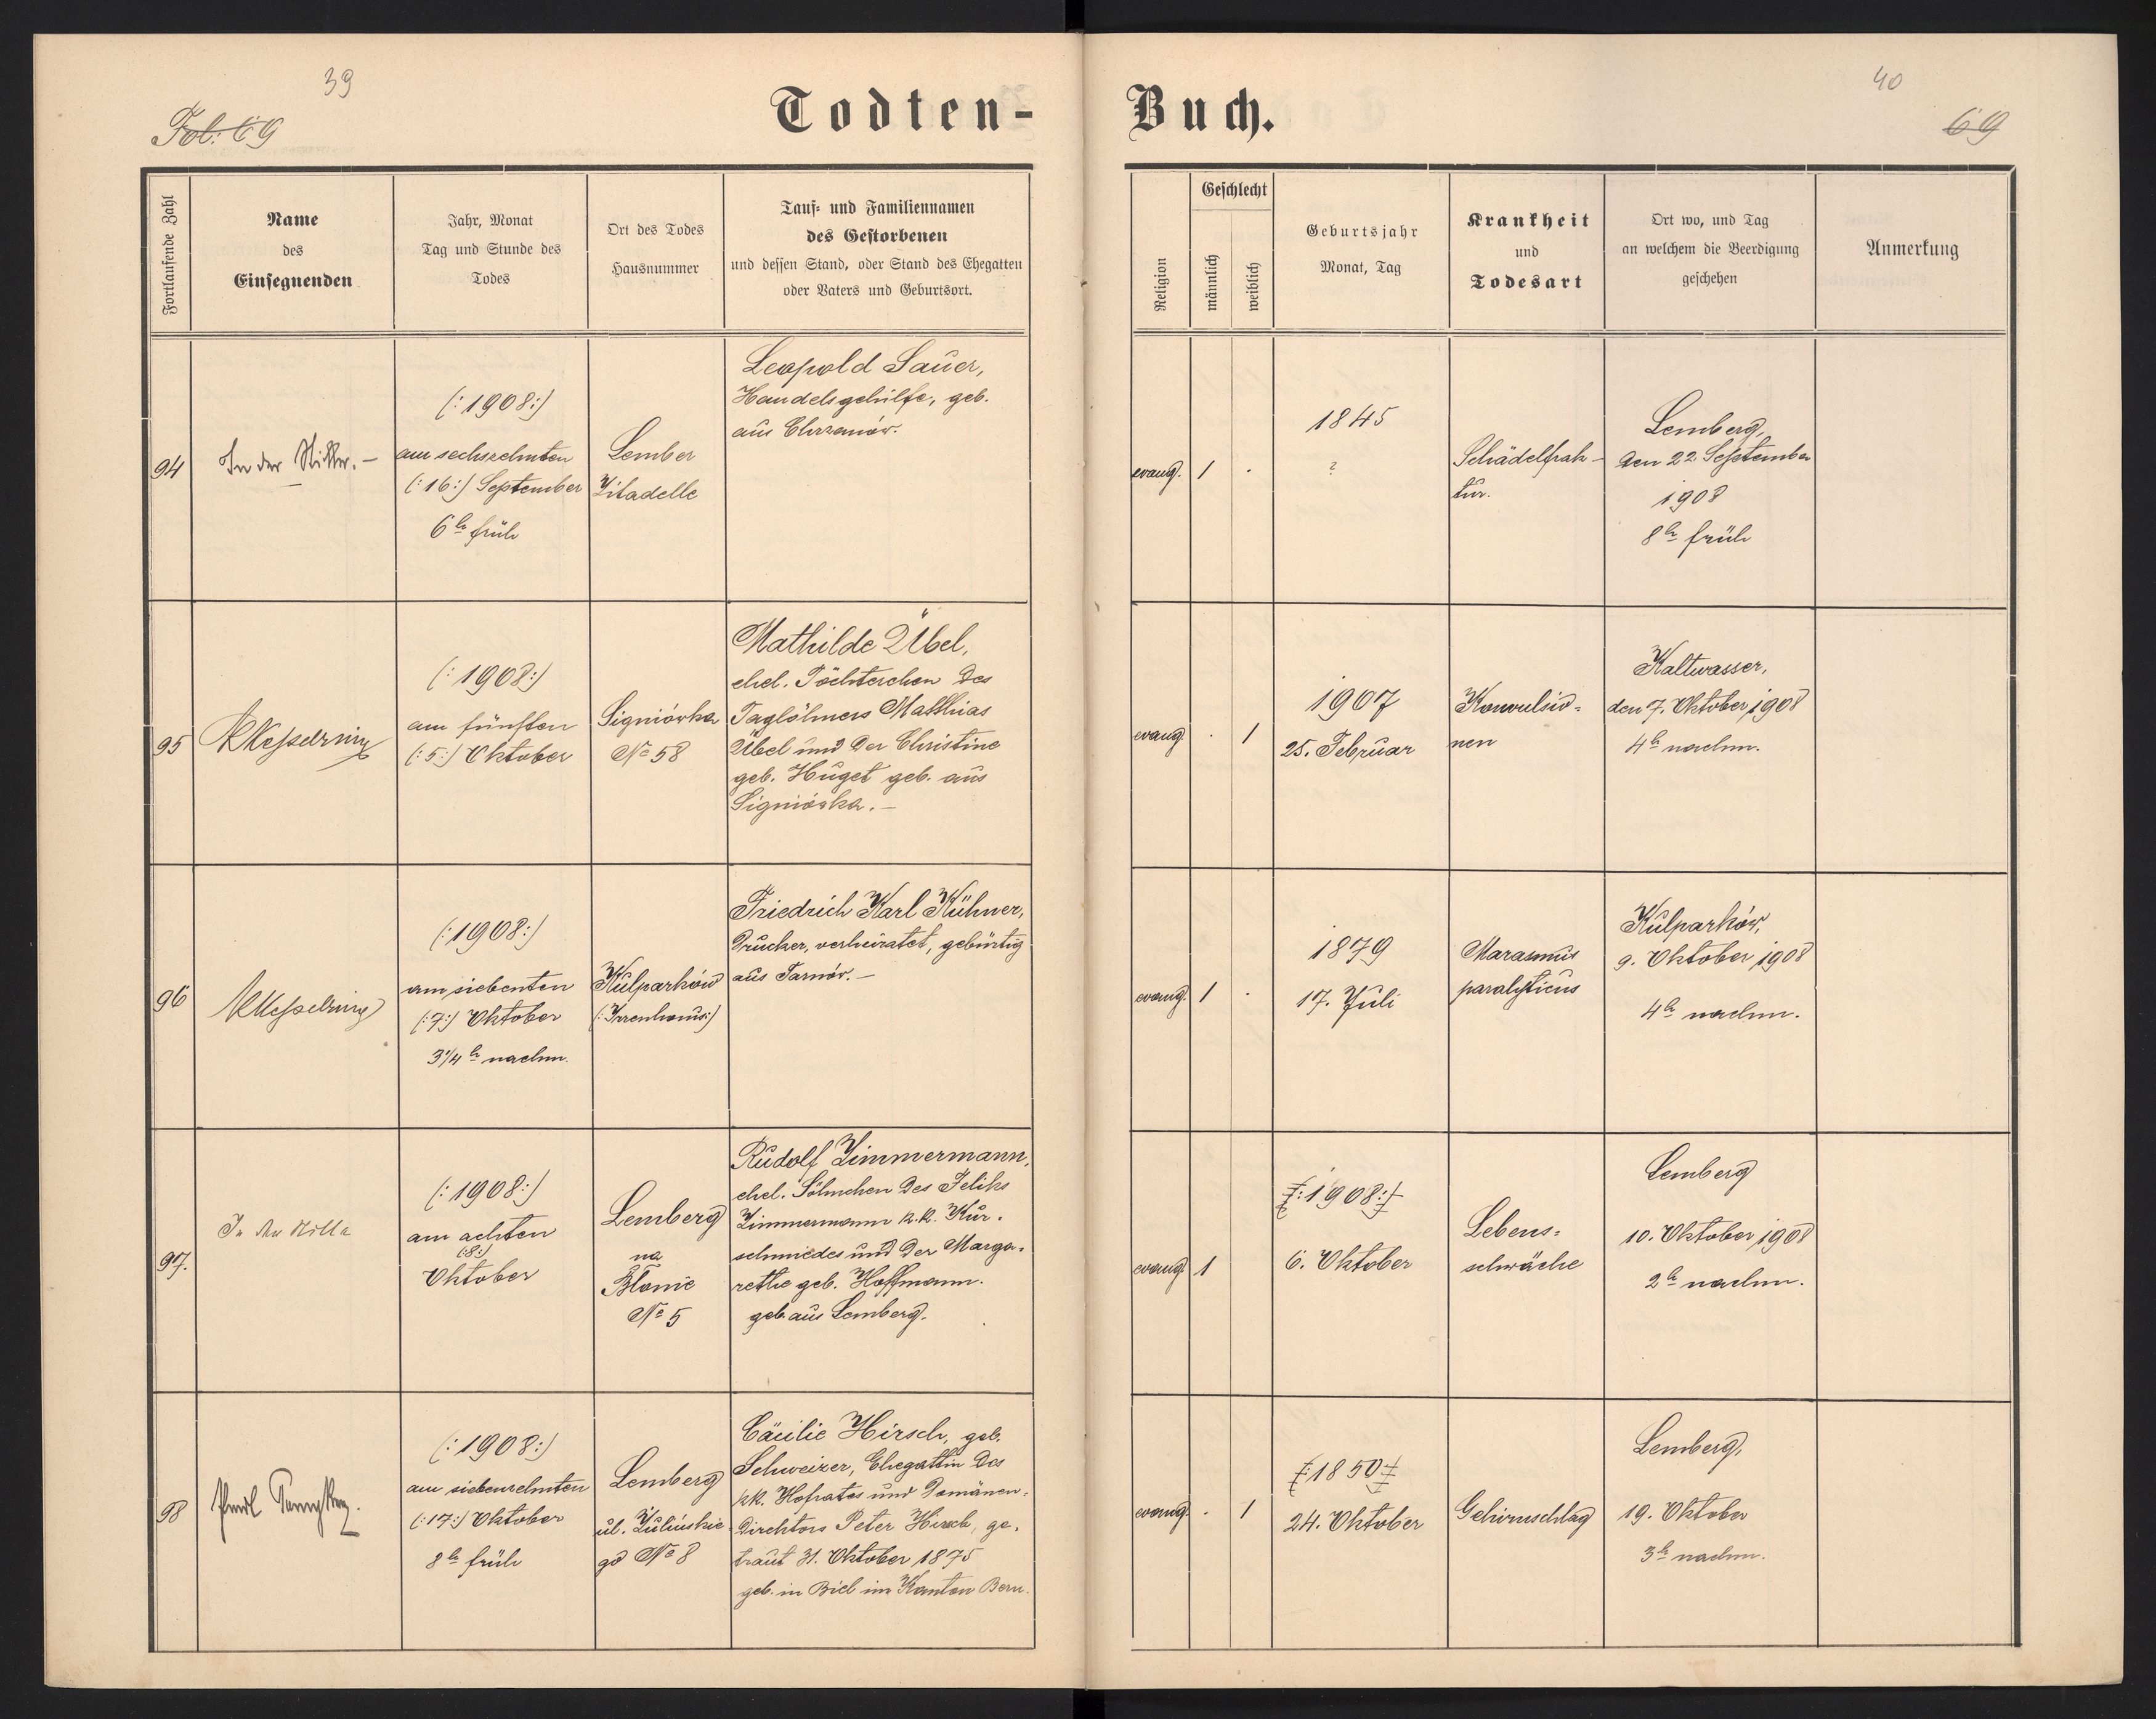 39
Fol: 69
Todten-
Fortlaufende Zahl
Name
des
Einsegnenden
Jahr, Monat
Tag und Stunde des
Todes
Ort des Todes
Hausnummer
Tauf- und Familiennamen
des Gestorbenen
und dessen Stand, oder Stand des Ehegatten
oder Vaters und Geburtsort.
94
In der Stille. —
(: 1908 :)
am sechzehnten
(: 16 :) September
6 h früh
Lember
Zitadelle
Leopold Sauer,
Handelsgehülfe, geb.
aus Chrzanów.
95
Kesselring
(: 1908 :)
am fünften
(: 5 :) Oktober
Signiówka
No 58
Mathilde Übel,
ehel. Töchterchen des
Taglöhners Matthias
Übel und der Christine
geb. Huget geb. aus
Signiówka. —
96
Kesselring
(: 1908 :)
am siebenten
(: 7 :) Oktober
3 1/4 h nachm.
Kulparków
(: Irrenhaus :)
Friedrich Karl Kühner,
Drucker, verheiratet, gebürtig
aus Tarnów. —
97.
In der Stille
(: 1908 :)
am achten
(: 8 :)
Oktober
Lemberg
na
Błonie
No 5
Rudolf Zimmermann,
ehel. Söhnchen des Feliks
Zimmermann k.k. Kur-
schmiedes und der Marga-
rethe geb. Hoffmann.
geb. aus Lemberg.
98
(: 1908 :)
am siebenzehnten
(: 17 :) Oktober
8 h früh
Lemberg
ul. Zulińskie
go No 8
Cäcilie Hirsch, geb.
Schweizer, Ehegattin des
kk. Hofrates und Domänen-
direktors Peter Hirsch, ge-
traut 31. Oktober 1875
geb. in Biel im Kanton Bern.
40
69
Buch.
Religion
Geschlecht
männlich
weiblich
Geburtsjahr
Monat, Tag
Krankheit
und
Todesart
Ort wo, und Tag
an welchem die Beerdigung
geschehen
Anmerkung
evang.
1
·
1845
?
Schädelfrak-
tur.
Lemberg,
den 22. September
1908
8 h früh
evang.
·
1
1907
25. Februar
Konvulsio-
nen
Kaltwasser,
den 7. Oktober 1908
4 h nachm.
evang.
1
·
1879
17. Juli
Marasmus
paralyticus
Kulparków,
9. Oktober 1908
4 h nachm.
evang.
1
(: 1908 :)
6. Oktober
Lebens-
schwäche
Lemberg
10. Oktober 1908
2 h nachm.
evang.
·
1
(: 1850 :)
24. Oktober
Gehirnschlag
Lemberg,
19. Oktober
3 h nachm.